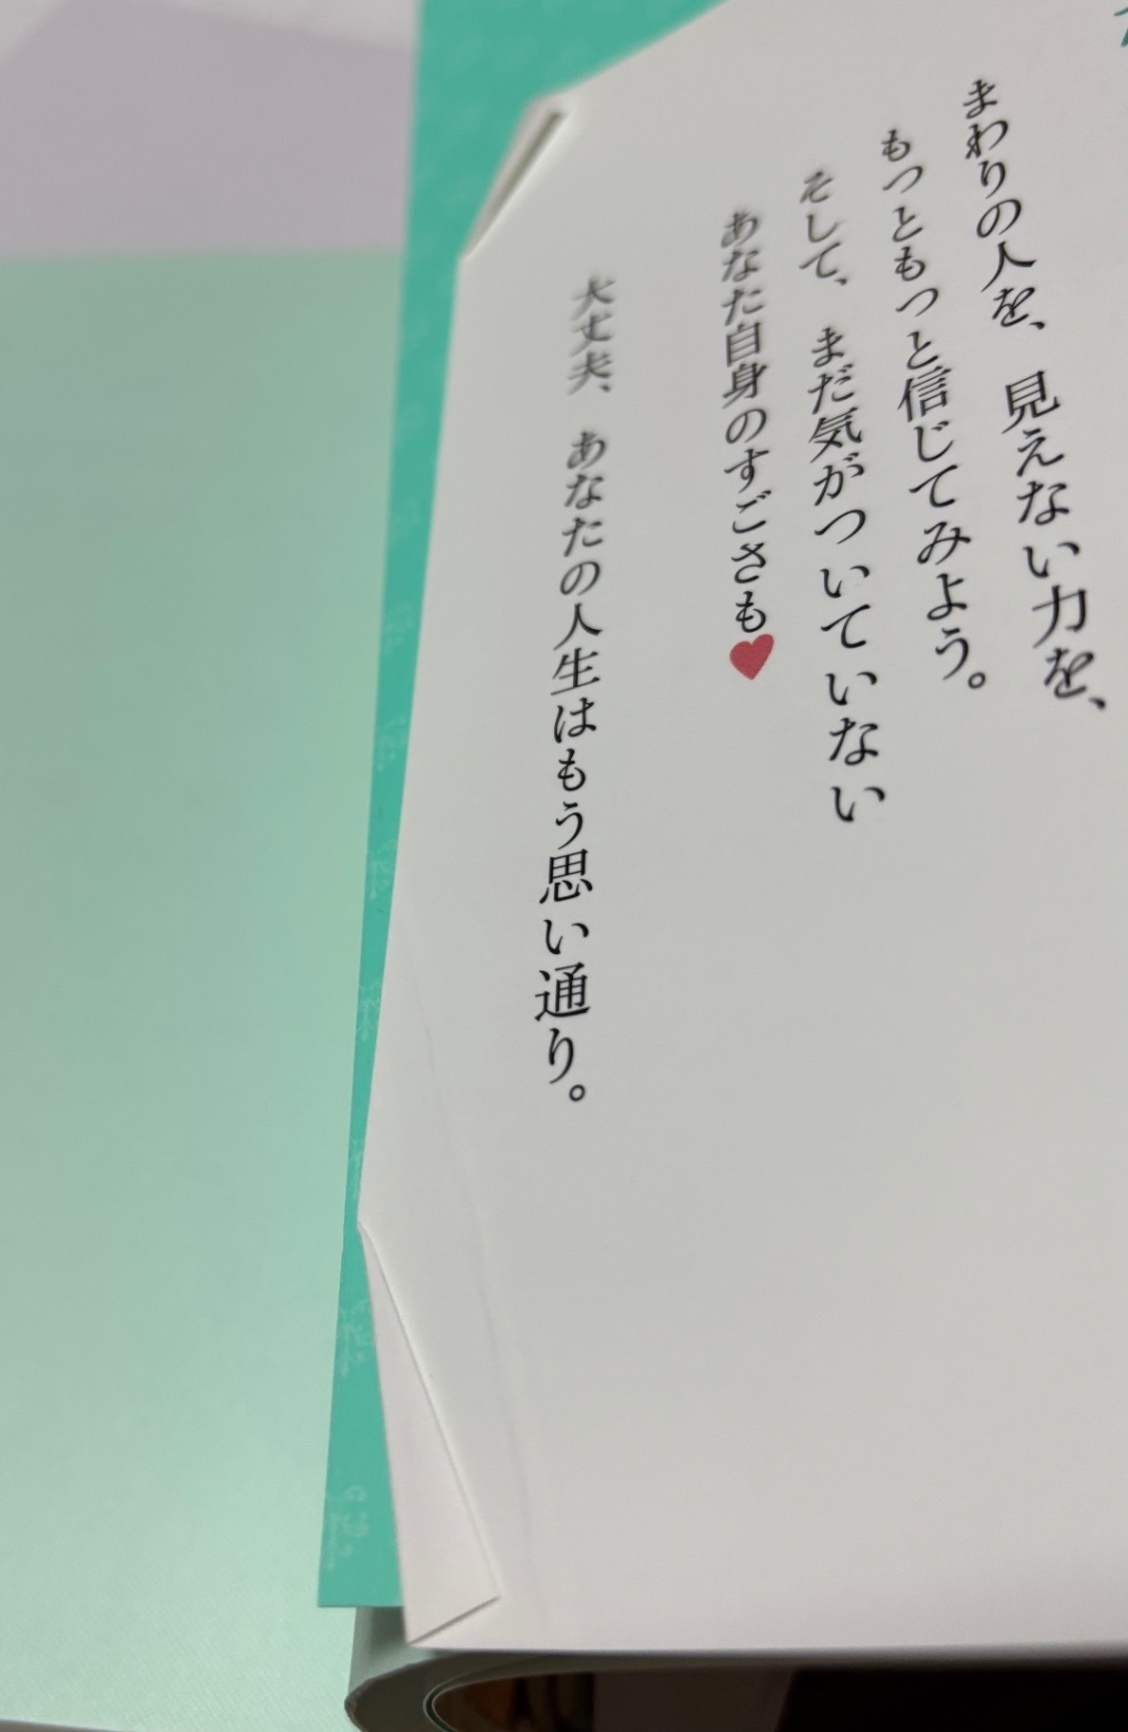 まわりの人を、見えない力を、
もっともっと信じてみよう。
そして、まだ気がついていない
あなた自身のすごさも♥
大丈夫、あなたの人生はもう思い通り。